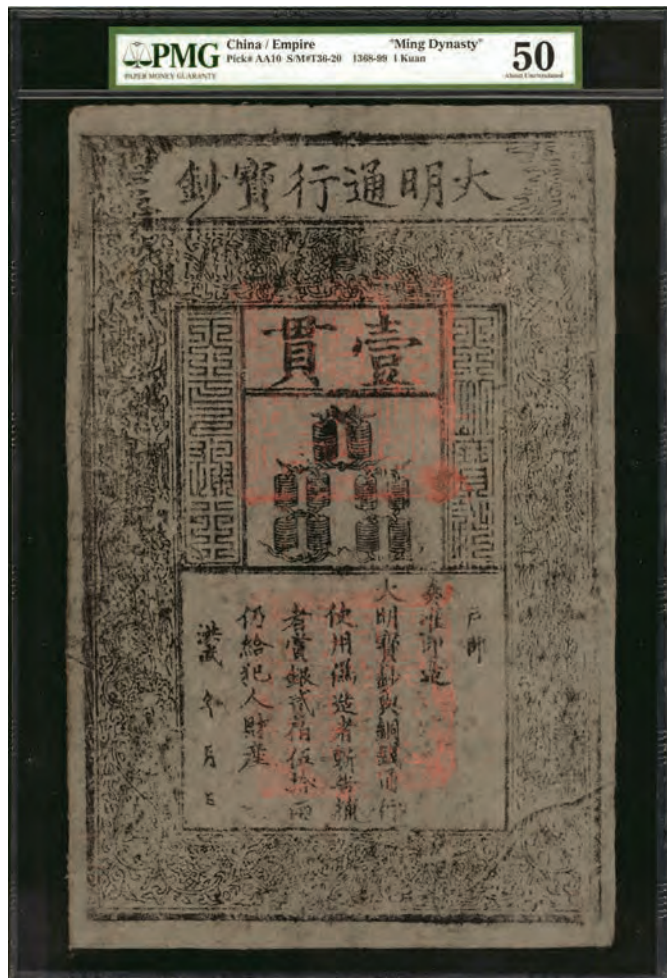 PMG
PAPER MONEY GUARANTY
China / Empire "Ming Dynasty"
Pick# AA10 S/M#T36-20 1368-99 1 Kuan
50
About Uncirculated
大明通行寶鈔
壹貫
大明寶鈔
天下通行
戶部
奏准印造
大明寶鈔與銅錢通行
使用偽造者斬告捕
者賞銀貳佰伍拾兩
仍給犯人財產
洪武 年 月 日